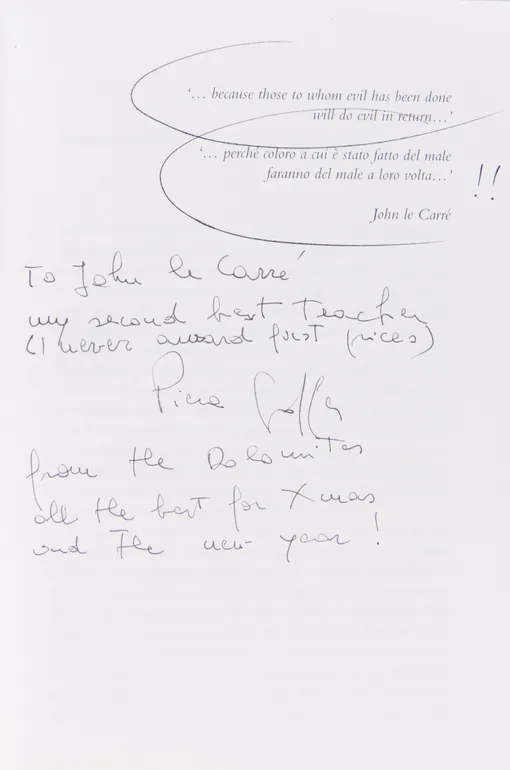 ‘... because those to whom evil has been done
will do evil in return...’
‘... perché coloro a cui è stato fatto del male
faranno del male a loro volta...’
!!
John le Carré
To John le Carré
my second best teacher
(I never award first prices)
from the Dolomites
all the best for Xmas
and the new year!